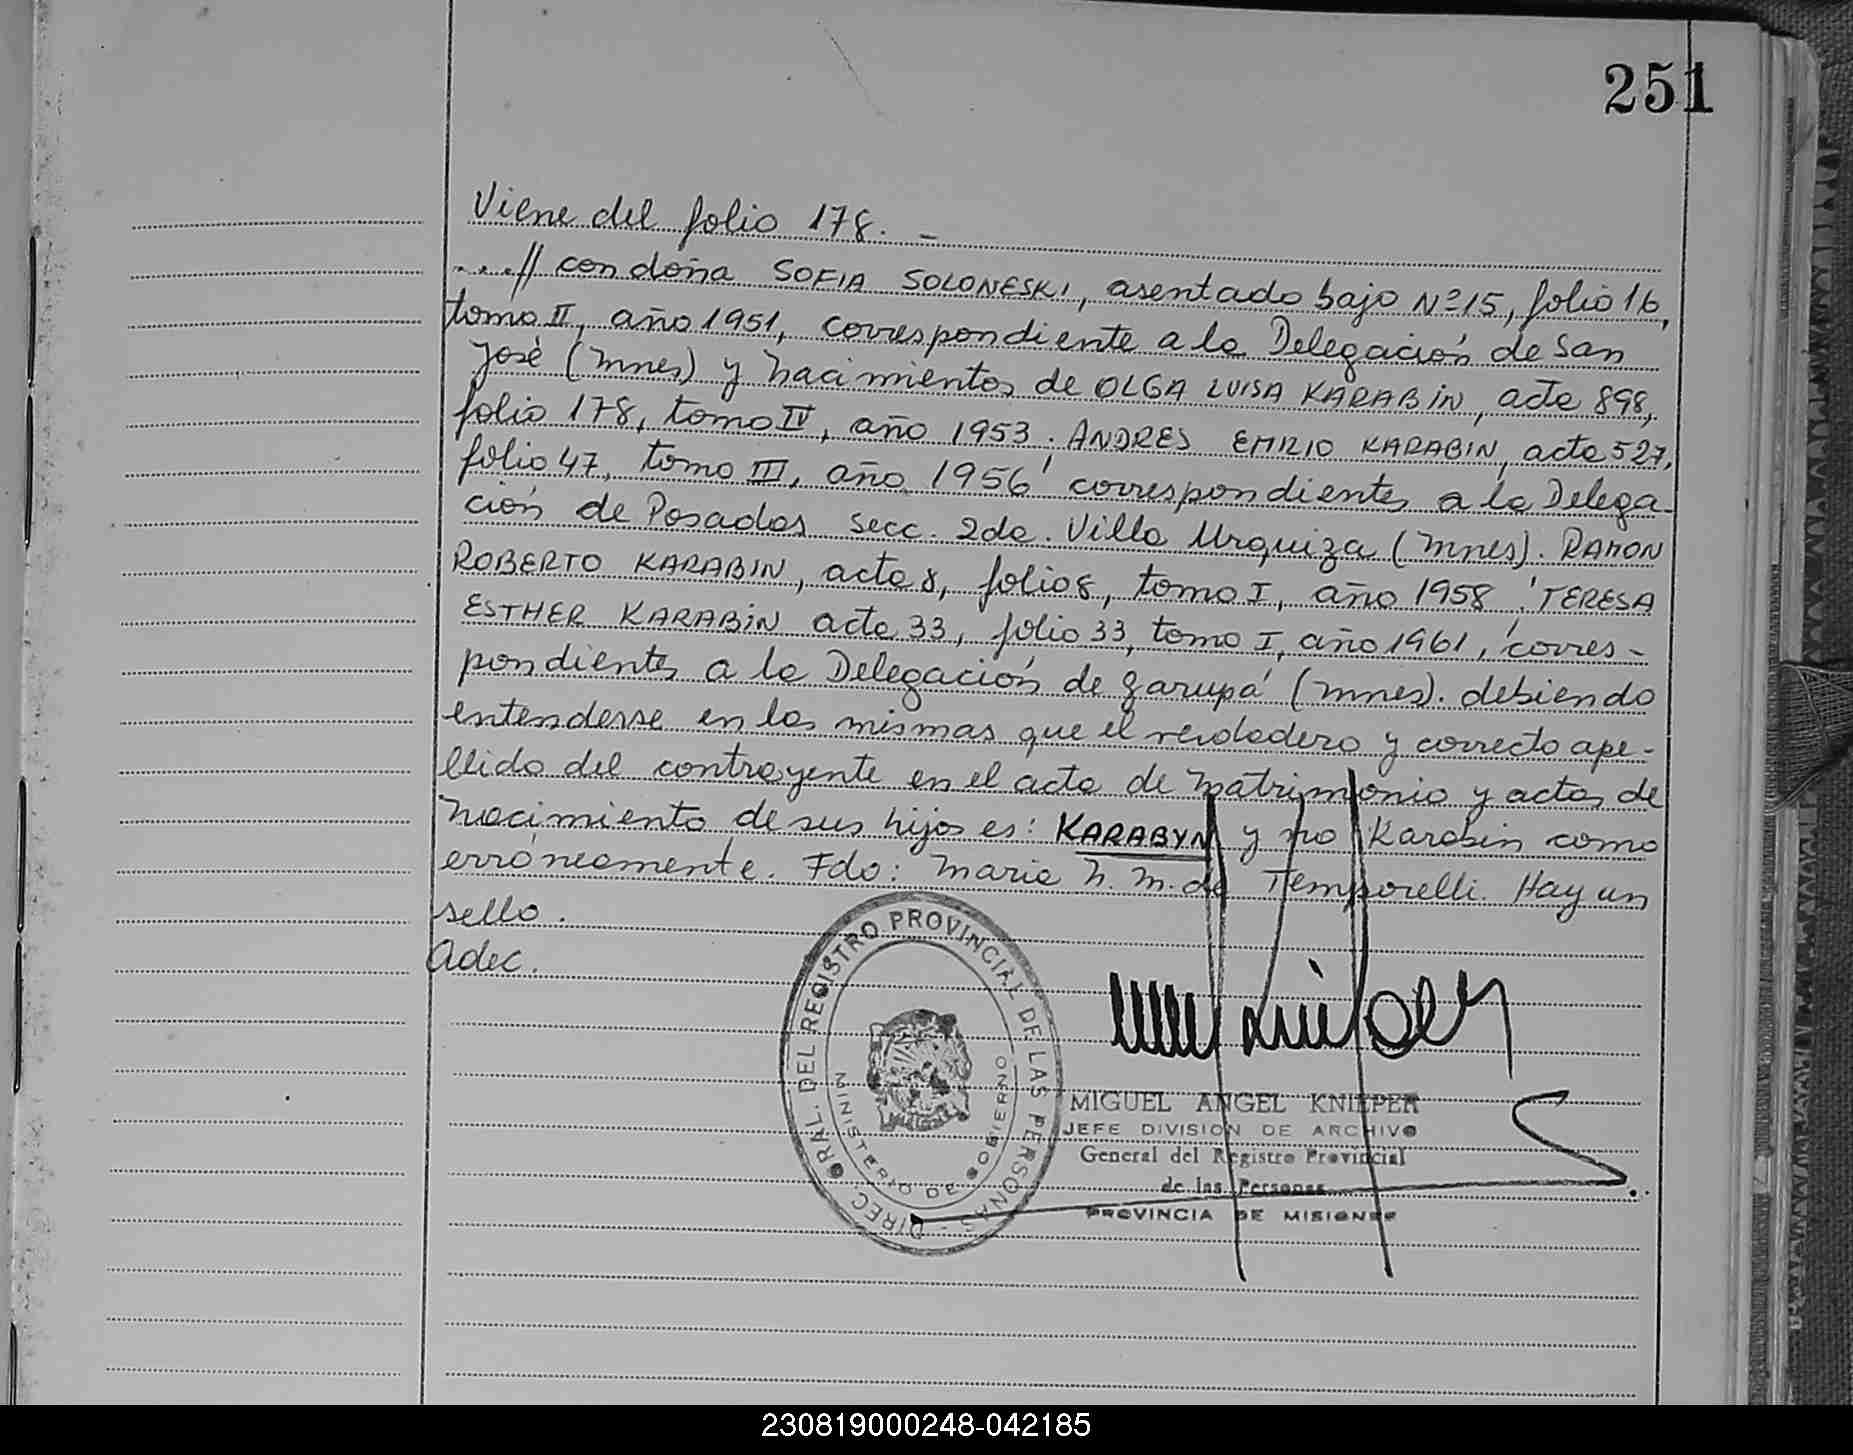 251
Viene del folio 178. –
...// con doña SOFIA SOLONESKI, asentado bajo Nº 15, folio 16,
tomo II, año 1951, correspondiente a la Delegación de San
José (Mnes) y Nacimientos de OLGA LUISA KARABIN, acta 898,
folio 178, tomo IV, año 1953; ANDRES EMRIO KARABIN, acta 527,
folio 47, tomo III, año 1956; correspondientes a la Delega-
ción de Posadas Secc. 2da. Villa Urquiza (Mnes). RAMON
ROBERTO KARABIN, acta 8, folio 8, tomo I, año 1958; TERESA
ESTHER KARABIN acta 33, folio 33, tomo I, año 1961, corres-
pondientes a la Delegación de Garupá (Mnes). debiendo
entenderse en las mismas que el verdadero y correcto ape-
llido del contrayente en el acta de Matrimonio y actas de
Nacimiento de sus hijos es: KARABYN y no Karabin como
erróneamente. Fdo: Maria N. M. de Temporelli. Hay un
sello.
Adec.
DIREC. GRAL. DEL REGISTRO PROVINCIAL DE LAS PERSONAS -
MINISTERIO DE GOBIERNO
MIGUEL ANGEL KNIEPER
JEFE DIVISION DE ARCHIVO
General del Registro Provincial
de las Personas
PROVINCIA DE MISIONES
230819000248-042185